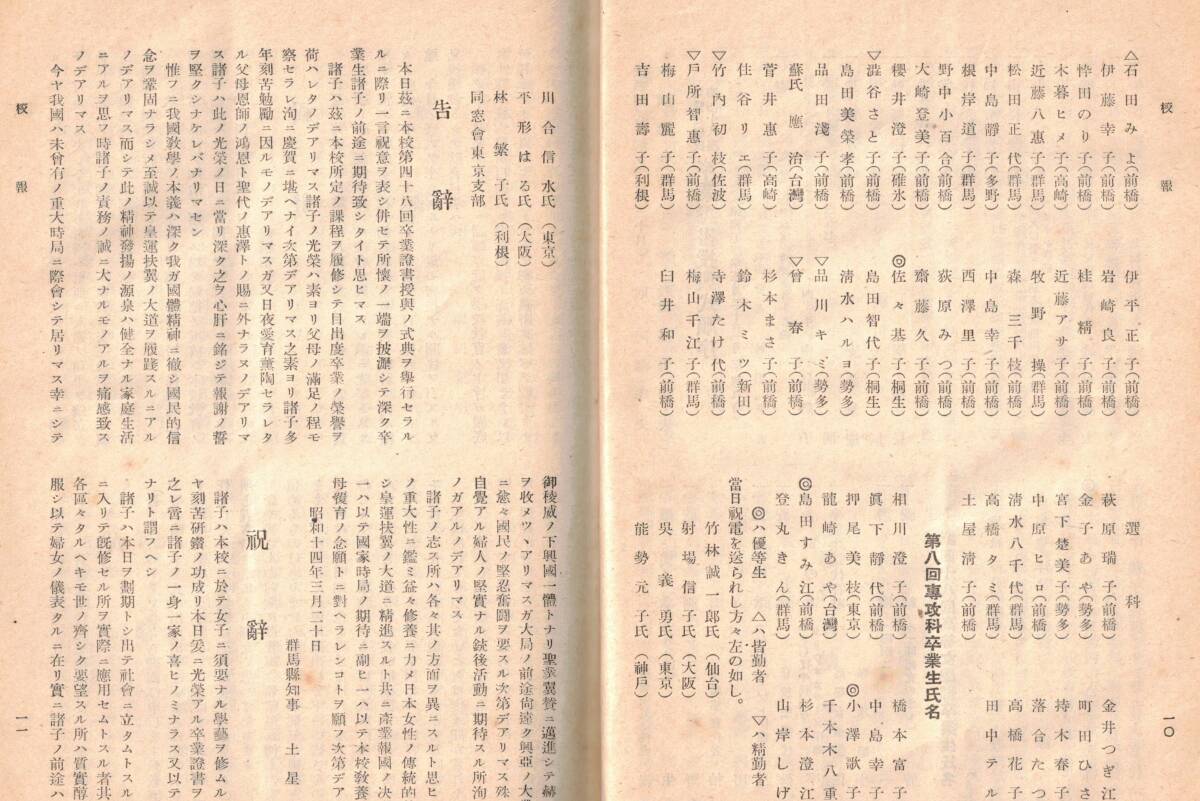 校報
一〇
△石田みよ(前橋)
伊藤幸子(前橋)
忰田のり子(前橋)
木暮ヒメ子(高崎)
近藤八惠子(群馬)
松田正代(群馬)
中島靜子(多野)
根岸道子(群馬)
野中小百合(前橋)
大崎登美子(前橋)
櫻井澄子(碓氷)
▽澁谷さと子(前橋)
島田美榮子(前橋)
品田淺子(前橋)
蘇氏應治(台灣)
菅井惠子(高崎)
住谷リエ(群馬)
▽竹內初枝(佐波)
▽戶所智惠子(前橋)
梅山麗子(群馬)
吉田壽子(利根)
伊平正子(前橋)
岩崎良子(前橋)
桂精子(前橋)
近藤アサ子(前橋)
牧野操(群馬)
森三千枝(前橋)
中島幸子(前橋)
西澤里子(前橋)
荻原みつ(前橋)
齋藤久子(前橋)
◎佐々基子(桐生)
島田智代子(桐生)
淸水ハルヨ(勢多)
▽品川キミ(勢多)
▽曾春子(前橋)
杉本まさ子(前橋)
鈴木ミツ(新田)
寺澤たけ代(前橋)
梅山千江子(群馬)
臼井和子(前橋)
選科
萩原瑞子(前橋)
金子あや(勢多)
宮下楚美子(勢多)
中原ヒロ(前橋)
淸水八千代(群馬)
高橋タミ(群馬)
土屋淸子(前橋)
金井つぎ江
町田ひさ
持木春子
落合たつ
高橋花子
田中テル
第八回專攻科卒業生氏名
相川澄子(前橋)
眞下靜代(前橋)
押尾美枝(東京)
龍崎あや(台灣)
◎島田すみ江(前橋)
登丸きん(群馬)
橋本富子
中島幸子
◎小澤歌子
千木木八重
杉本澄江
山岸しげ
◎ハ優等生 △ハ皆勤者 ▽ハ精勤者
當日祝電を送られし方々左の如し。
竹林誠一郎氏(仙台)
射場信子氏(大阪)
吳義勇氏(東京)
能勢元子氏(神戶)
川合信水氏(東京)
平形はる氏(大阪)
林繁子氏(利根)
同窓會東京支部
告辭
本日茲ニ本校第四十八回卒業證書授與ノ式典ヲ擧行セラル
ルニ際リ一言祝意ヲ表シ併セテ所懷ノ一端ヲ披瀝シテ深ク卒
業生諸子ノ前途ニ期待致シタイト思ヒマス
諸子ハ茲ニ本校所定ノ課程ヲ履修シテ目出度卒業ノ榮譽ヲ
荷ハレタノデアリマス諸子ノ光榮ハ素ヨリ父母ノ滿足ノ程モ
察セラレ洵ニ慶賀ニ堪ヘナイ次第デアリマス之素ヨリ諸子多
年刻苦勉勵ニ因ルモノデアリマスガ又日夜愛育薰陶セラレタ
ル父母恩師ノ鴻恩ト聖代ノ惠澤トノ賜ニ外ナラヌノデアリマ
ス諸子ハ此ノ光榮ノ日ニ當リ深ク之ヲ心肝ニ銘ジテ報謝ノ誓
ヲ堅クシナケレバナリマセン
惟フニ我國敎學ノ本義ハ深ク我ガ國體精神ニ徹シ國民的信
念ヲ鞏固ナラシメ至誠以テ皇運扶翼ノ大道ヲ履踐スルニアル
ノデアリマス而シテ此ノ精神發揚ノ源泉ハ健全ナル家庭生活
ニアルヲ思フ時諸子ノ責務ノ誠ニ大ナルモノアルヲ痛感致ス
ノデアリマス
今ヤ我國ハ未曾有ノ重大時局ニ際會シテ居リマス幸ニシテ
御稜威ノ下興國一體トナリ聖業翼贊ニ邁進シテ赫
ヲ收メツヽアリマスガ大局ノ前途尙遠ク興亞ノ大業
ニ愈々國民ノ堅忍奮鬪ヲ要スル次第デアリマス殊
自覺アル婦人ノ堅實ナル銃後活動ニ期待スル所洵
ノガアルノデアリマス
諸子ノ志ス所ハ各々其ノ方面ヲ異ニスルト思ヒ
ノ重大性ニ鑑ミ益々修養ニ力メ日本女性ノ傳統的
シ皇運扶翼ノ大道ニ精進スルト共ニ產業報國ノ決
一ハ以テ國家時局ノ期待ニ副ヒ一ハ以テ本校敎養
母覆育ノ念願トニ對ヘラレンコトヲ願フ次第デア
昭和十四年三月二十日
群馬縣知事 土屋
祝辭
諸子ハ本校ニ於テ女子ニ須要ナル學藝ヲ修ムル
ヤ刻苦硏鑽ノ功成リ本日玆ニ光榮アル卒業證書ヲ
之レ啻ニ諸子ノ一身一家ノ喜ヒノミナラス又以テ
ナリト謂フヘシ
諸子ハ本日ヲ劃期トシ出テ社會ニ立タムトスル
ニ入リテ旣修セル所ヲ實際ニ應用セムトスル者其
各區々タルヘキモ世ノ齊シク要望スル所ハ質實醇
服シ以テ婦女ノ儀表タルニ在リ實ニ諸子ノ前途ハ
校報
一一